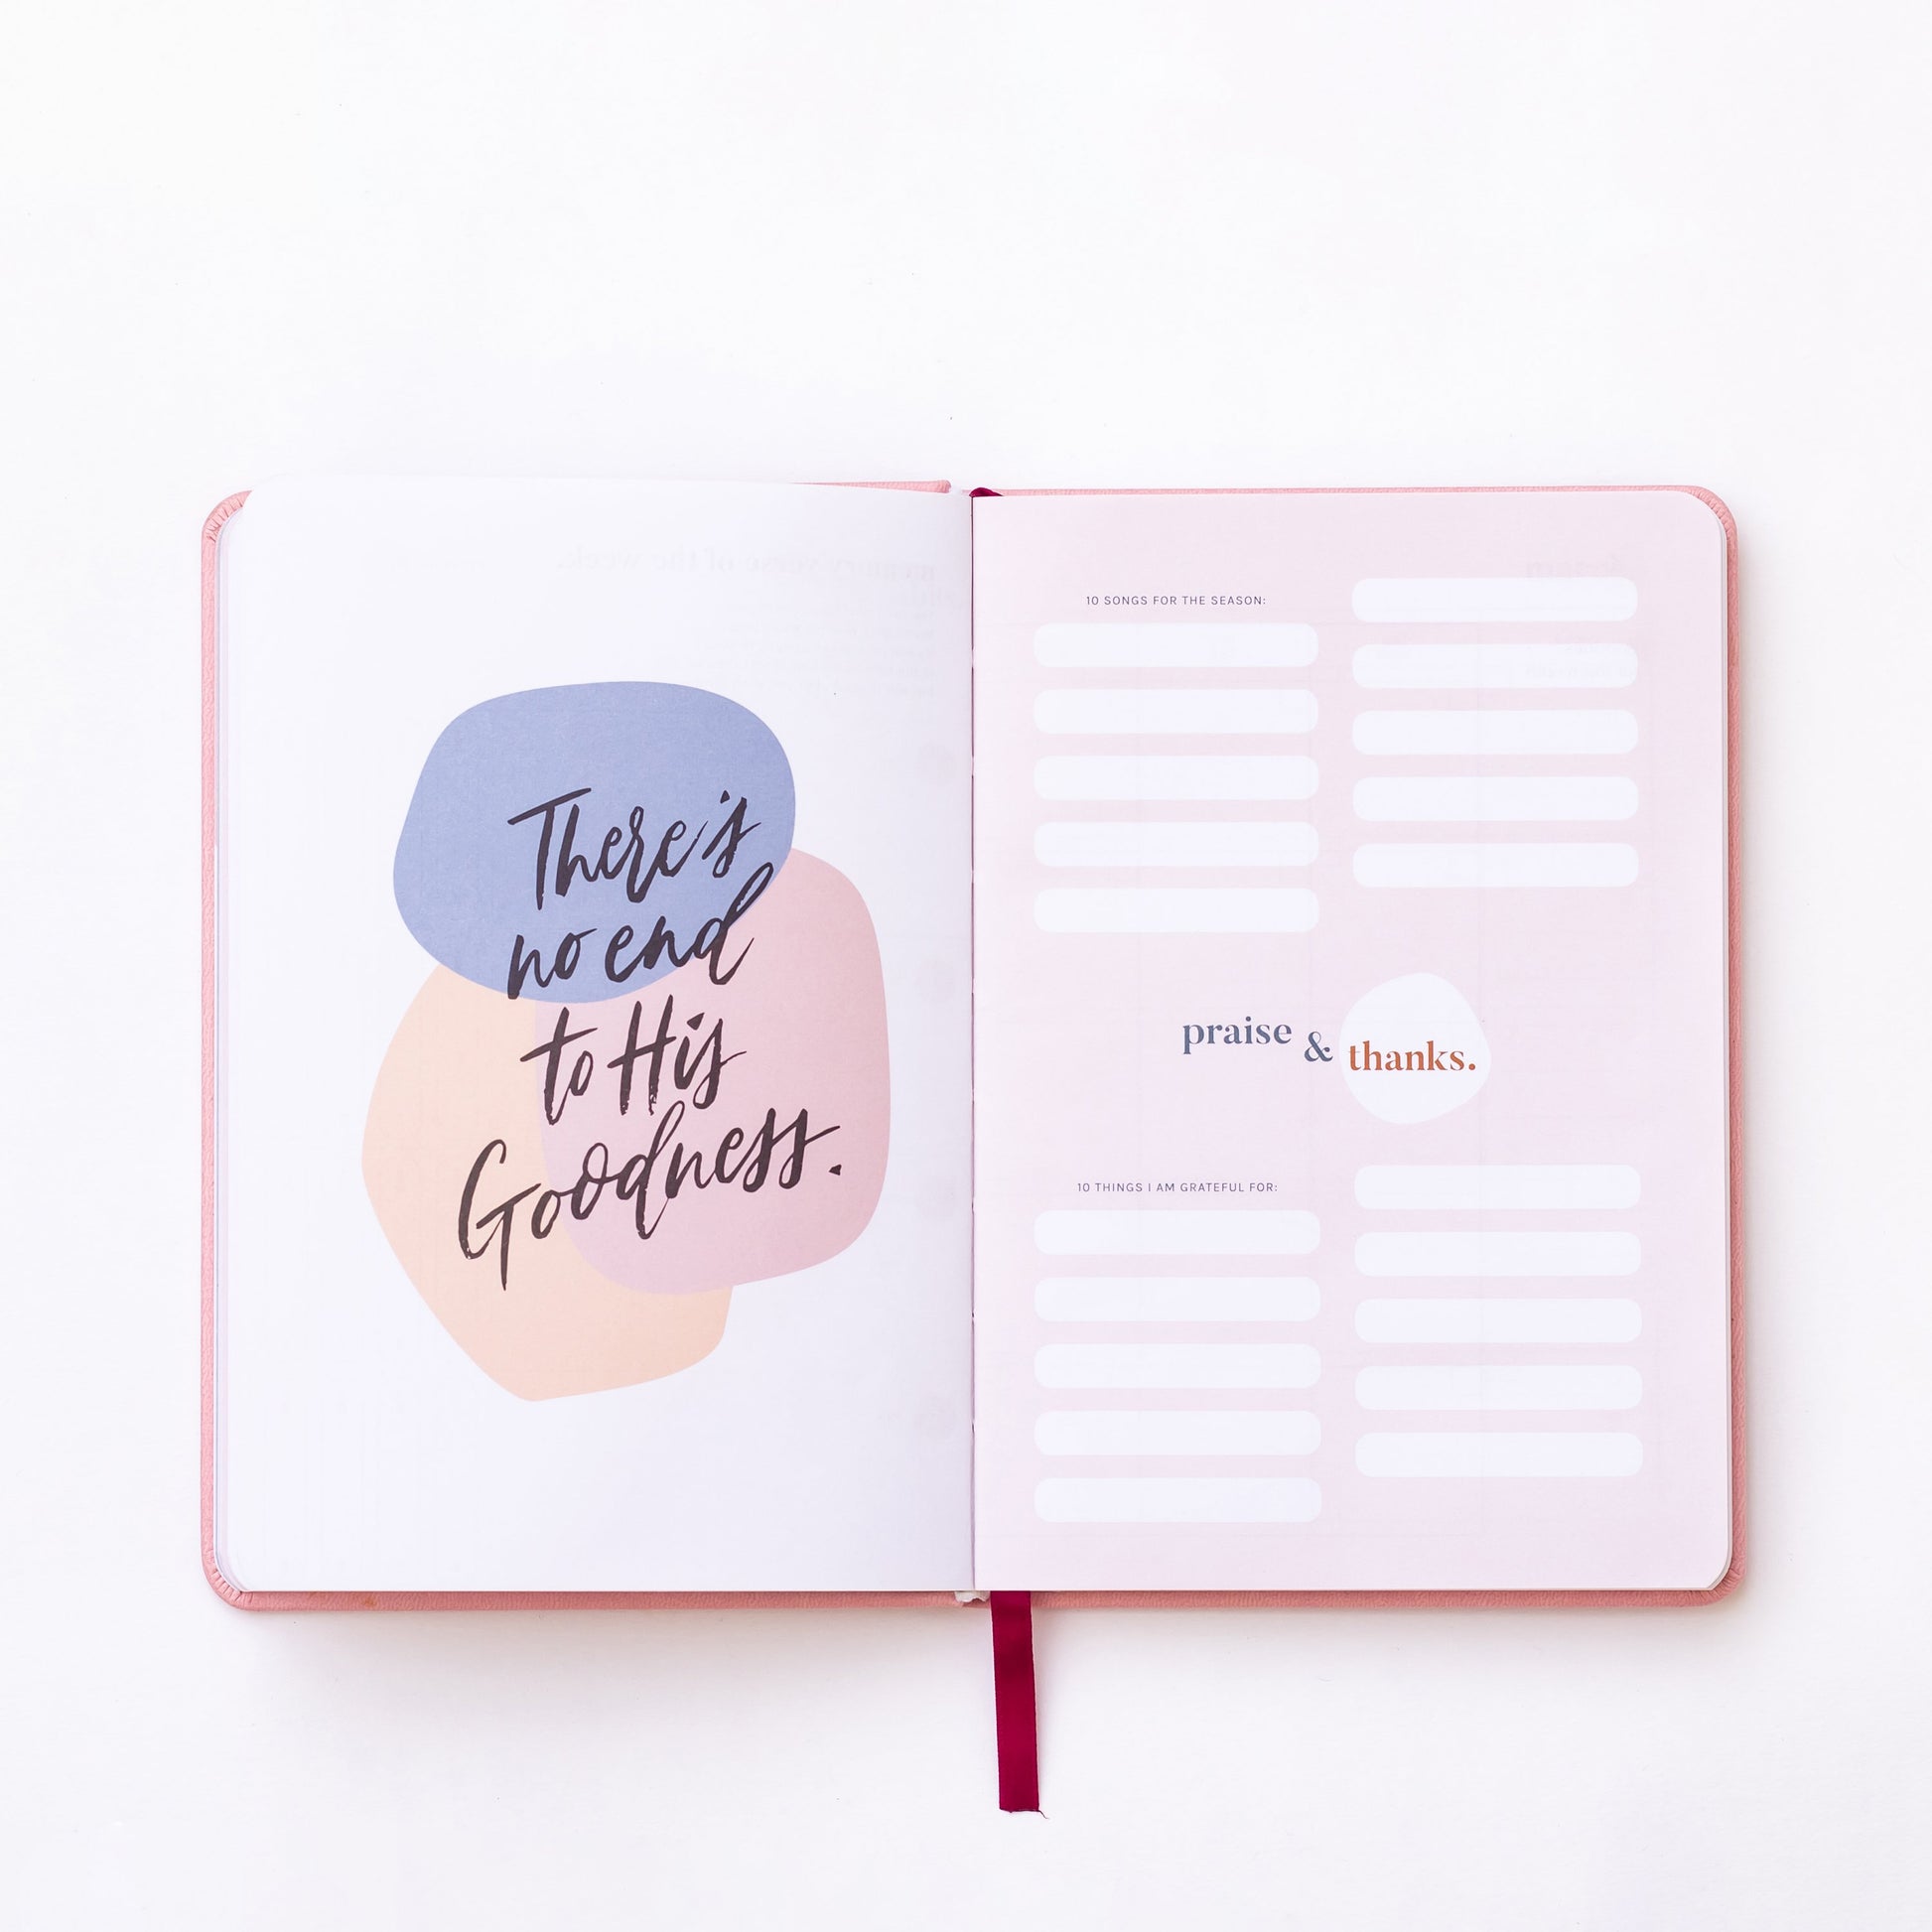 There's
no end
to His
Goodness.
10 SONGS FOR THE SEASON:
praise & thanks.
10 THINGS I AM GRATEFUL FOR: